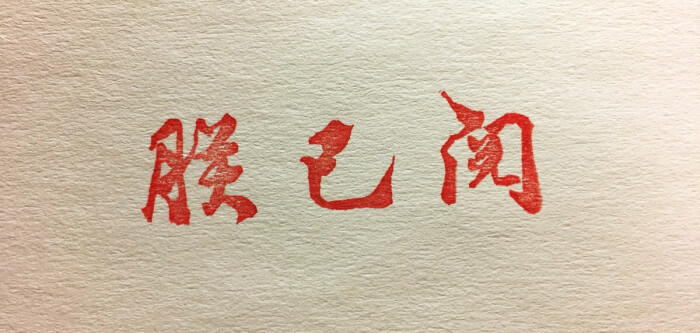 朕已阅